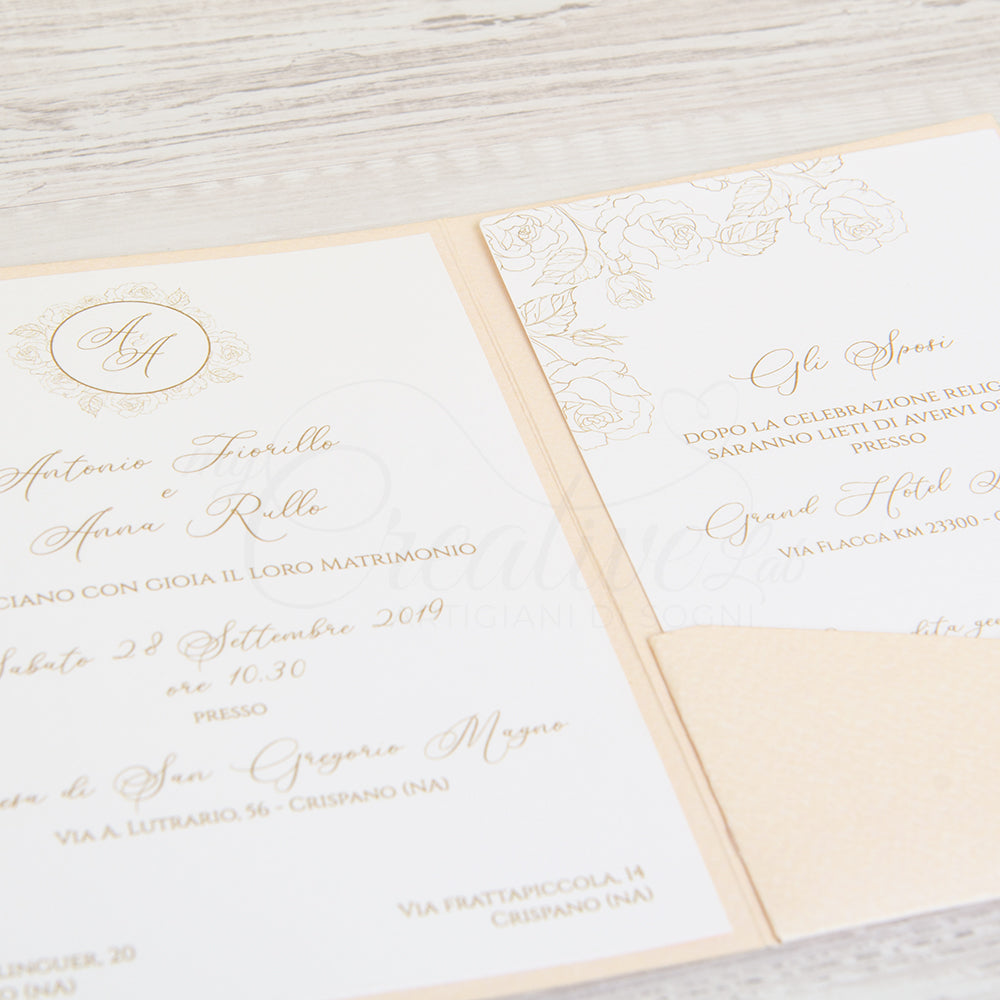 A e A
Antonio Fiorillo
e
Anna Rullo
CIANO CON GIOIA IL LORO MATRIMONIO
Sabato 28 Settembre 2019
ore 10.30
PRESSO
di San Gregorio Magno
VIA A. LUTRARIO, 56 - CRISPANO (NA)
VIA FRATTAPICCOLA, 14
CRISPANO (NA)
LINGUER, 20
NO (NA)
Gli Sposi
DOPO LA CELEBRAZIONE RELIG
SARANNO LIETI DI AVERVI OS
PRESSO
Grand Hotel
VIA FLACCA KM 23300 -
My
Creative Lab
ARTIGIANI DI SOGNI